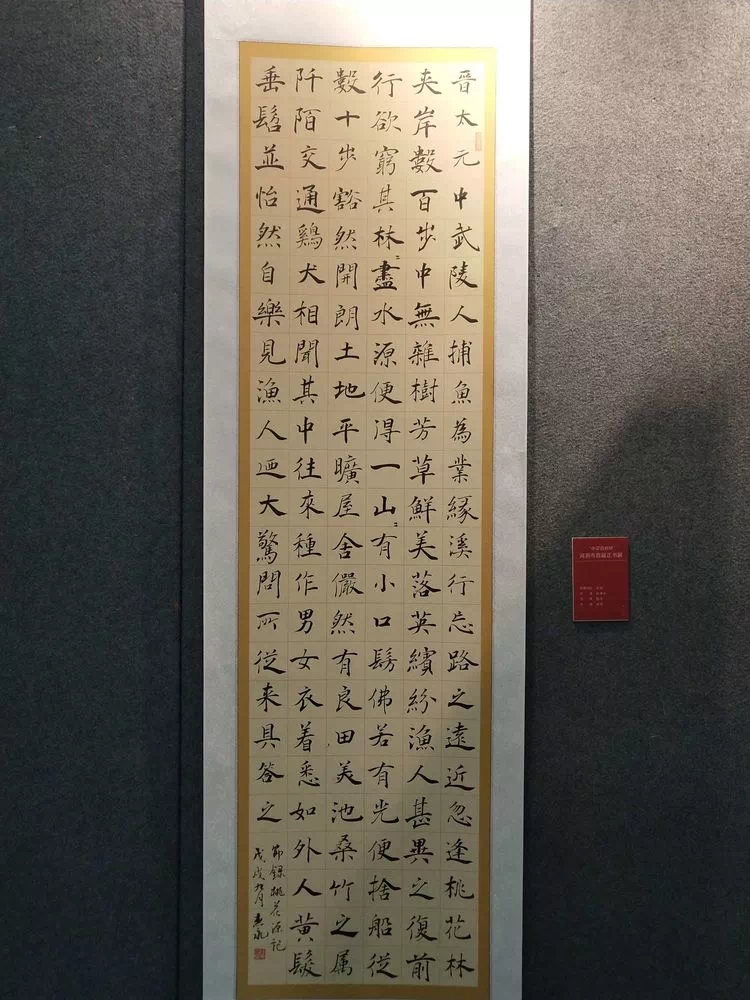 晋太元中武陵人捕魚為業縁溪行忘路之遠近忽逢桃花林
夾岸數百步中無雜樹芳草鮮美落英繽紛漁人甚異之復前
行欲窮其林〻盡水源便得一山〻有小口髣佛若有光便捨船従
數十步豁然開朗土地平曠屋舍儼然有良田美池桑竹之属
阡陌交通鷄犬相聞其中往來種作男女衣着悉如外人黄髮
垂髫並怡然自樂見漁人廼大驚問所従来具答之
節錄桃花源記
戊戌九月